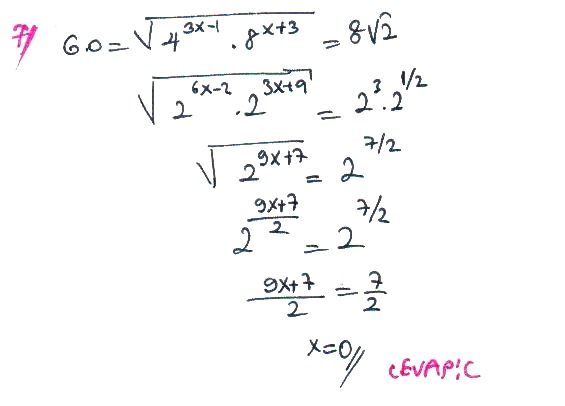 7/ G.O = √(4^(3x-1) . 8^(x+3)) = 8√2
√(2^(6x-2) . 2^(3x+9)) = 2^3 . 2^(1/2)
√(2^(9x+7)) = 2^(7/2)
2^((9x+7)/2) = 2^(7/2)
(9x+7)/2 = 7/2
x=0//
CEVAP:C